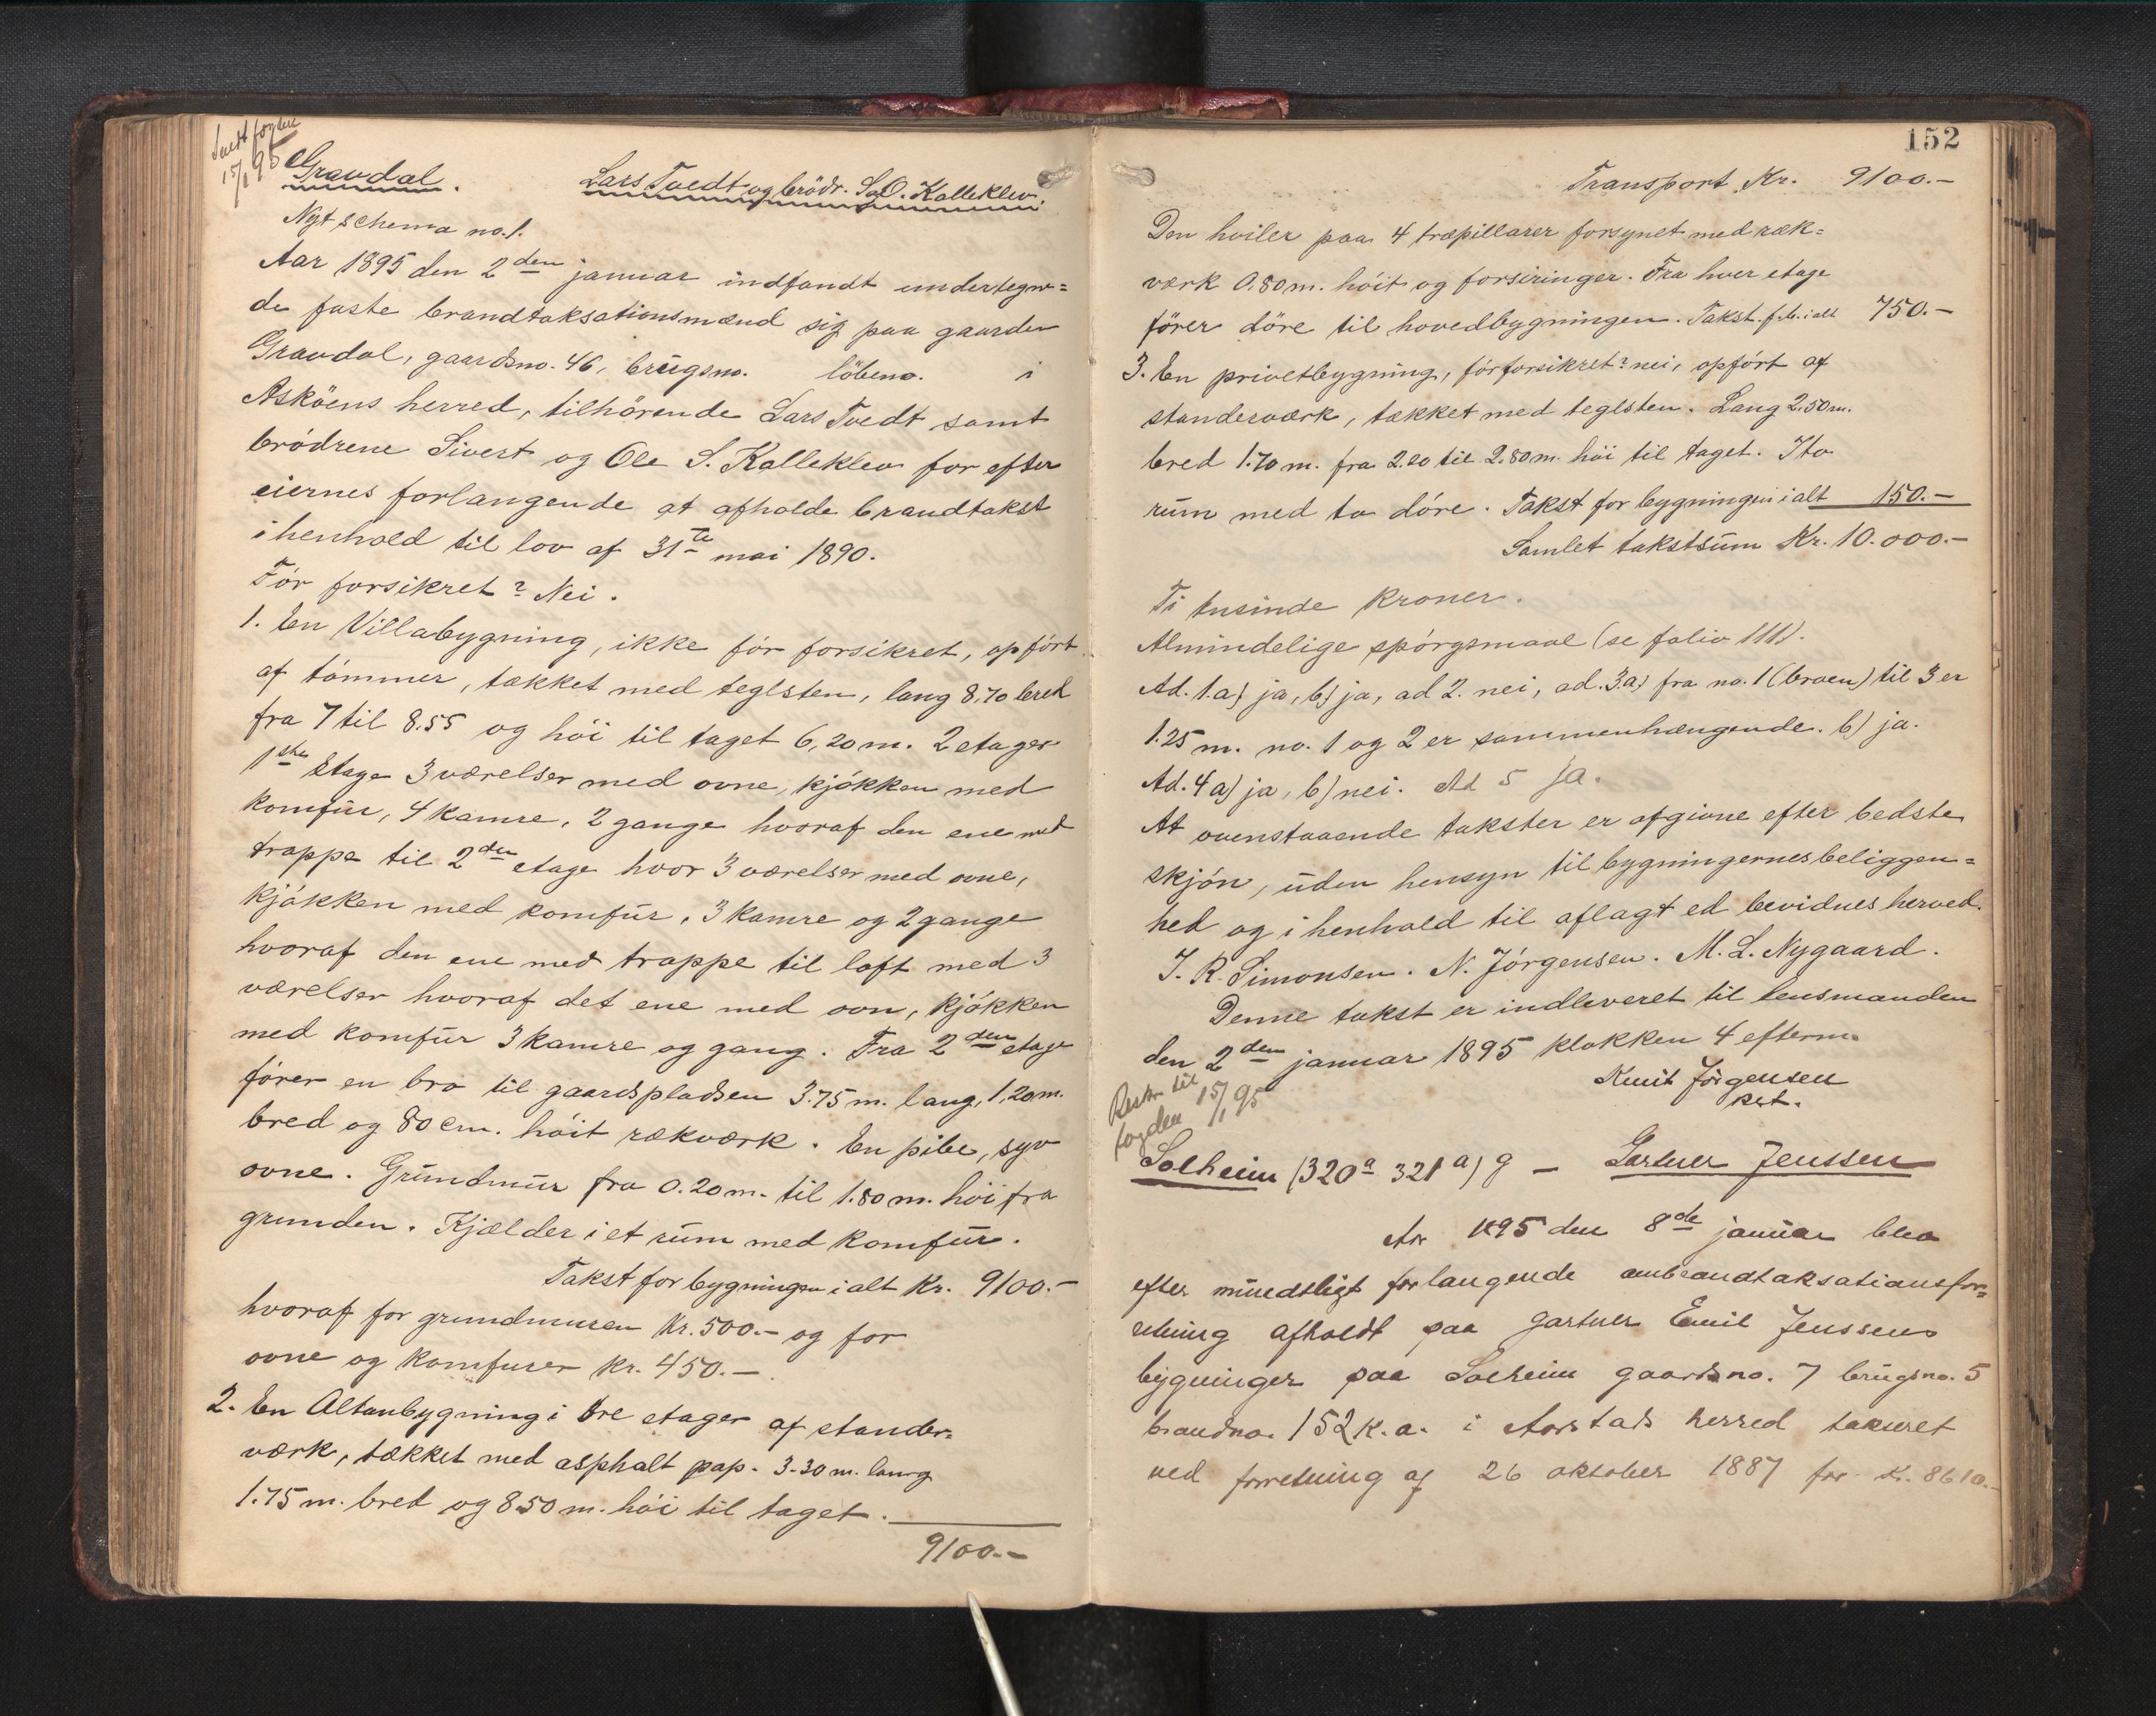 Sendt fogden
15/1 95
Gravdal. Lars Tvedt og brödr. S. O. Kalleklev.
Nyt schema no. 1.
Aar 1895 den 2den januar indfandt undertegne=
de faste brandtaksationsmænd sig paa gaarden
Gravdal, gaardsno. 46, brugsno. löbeno. i
Asköens herred, tilhörende Lars Tvedt samt
brödrene Sivert og Ole S. Kalleklev for efter
eiernes forlangende at afholde brandtakst
i henhold til lov af 31te mai 1890.
För forsikret? Nei.
1. En Villabygning, ikke för forsikret, opfört
af tömmer, tækket med teglsten, lang 8,70 bred
fra 7 til 8.55 og höi til taget 6,20 m. 2 etager
1ste Etage 3 værelser med ovne, kjökken med
komfür, 4 kamre, 2 gange hvoraf den ene med
trappe til 2den etage hvor 3 værelser med ovne,
kjökken med komfür, 3 kamre og 2 gange
hvoraf den ene med trappe til loft med 3
værelser hvoraf det ene med ovn, kjökken
med komfür 3 kamre og gang. Fra 2den etage
förer en bro til gaardspladsen 3.75 m. lang, 1,20 m.
bred og 80 cm. höit rækværk. En pibe, syv
ovne. Gründmür fra 0.20 m. til 1.80 m. höi fra
grunden. Kjælder i et rüm med komfür.
Takst for bygningen i alt Kr. 9100.-
hvoraf for grundmuren Kr. 500.- og for
ovne og komfurer kr. 450.-
2. En Altanbygning i tre etager af stander=
værk, tækket med asphalt pap. 3.30 m. lang
1.75 m. bret og 8.50 m. höi til taget.
9100.-
152
Transport Kr. 9100.-
Den hviler paa 4 træpillarer forsynet med ræk=
værk 0.80 m. höit og forsiringer. Fra hver etage
förer döre til hovedbygningen. Takst f. b. i alt 750.-
3. En privetbygning, för forsikret? nei, opfört af
standerværk, tækket med teglsten. Lang 2.50 m.
bred 1.70 m. fra 2.20 til 2.80 m. höi til taget. I to
rüm med to döre. Takst for bygningen i alt 150.-
Samlet takstsüm Kr. 10.000.-
Ti tusinde Kroner.
Almindelige spörgsmaal (se folio 111).
Ad. 1. a) ja, b) ja, ad 2. nei, ad. 3. a) fra no. 1 (broen) til 3 er
1.25 m. no. 1 og 2 er sammenhængende. b) ja.
Ad. 4 a) ja, b) nei. Ad 5 ja.
At ovenstaaende takster er afgivne efter bedste
skjön, üden hensyn til bygningernes beliggen=
hed og i henhold til aflagt ed bevidnes herved.
J. R. Simonsen. N. Jörgensen. M. L. Nygaard.
Denne takst er indleveret til lensmanden
den 2den januar 1895 klokken 4 efterm.
Knut Jörgensen
kst.
til
fogden 15/1 95
Solheim (320a 321a) g - Gartner Jenssen
Aar 1895 den 8de januar blev
efter mündtligt forlangende ombrandtaksationsfor=
retning afholdt paa gartner Emil Jenssens
bygninger paa Solheim gaardsno. 7 brugsno. 5
brandno. 152 K. a. i Aarstads herred takseret
ved forretning af 26 oktober 1887 for Kr. 8610.-